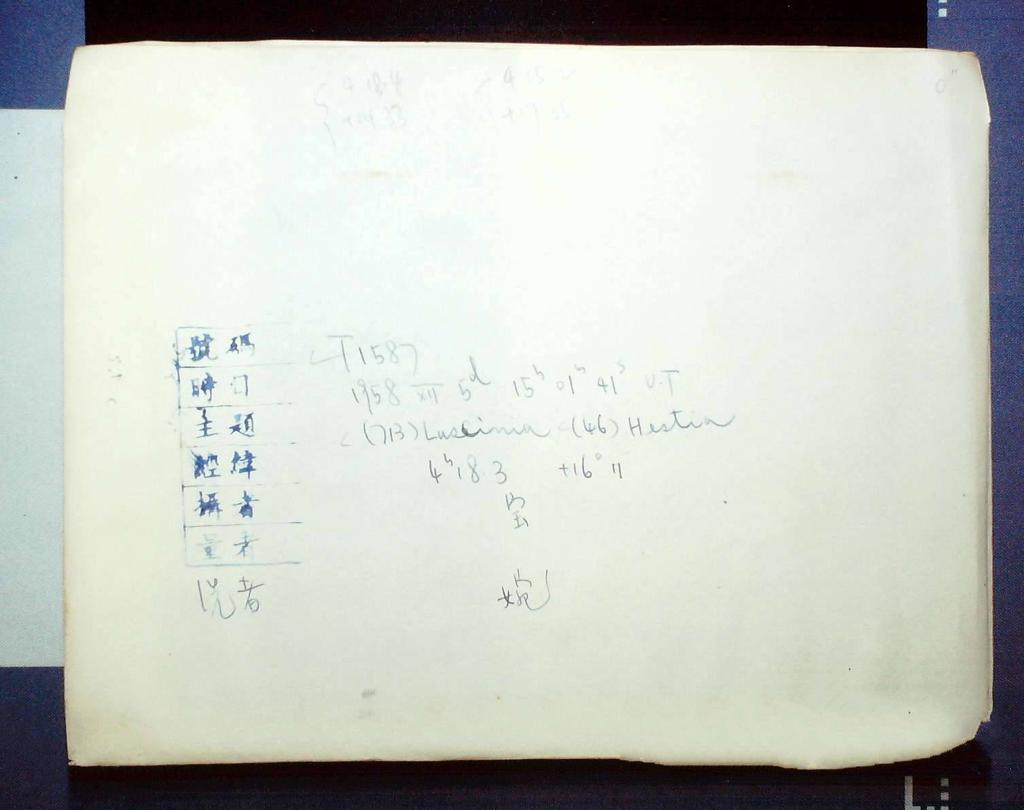 4 18.4 4 15
+14 33 +17
0"
號碼 T1587
時日 1958 XII 5d 15h 01m 41s U.T
主題 (713) Luscinia (46) Hestia
經緯 4h 18.3 +16° 11
攝者
量者
洗者 婉